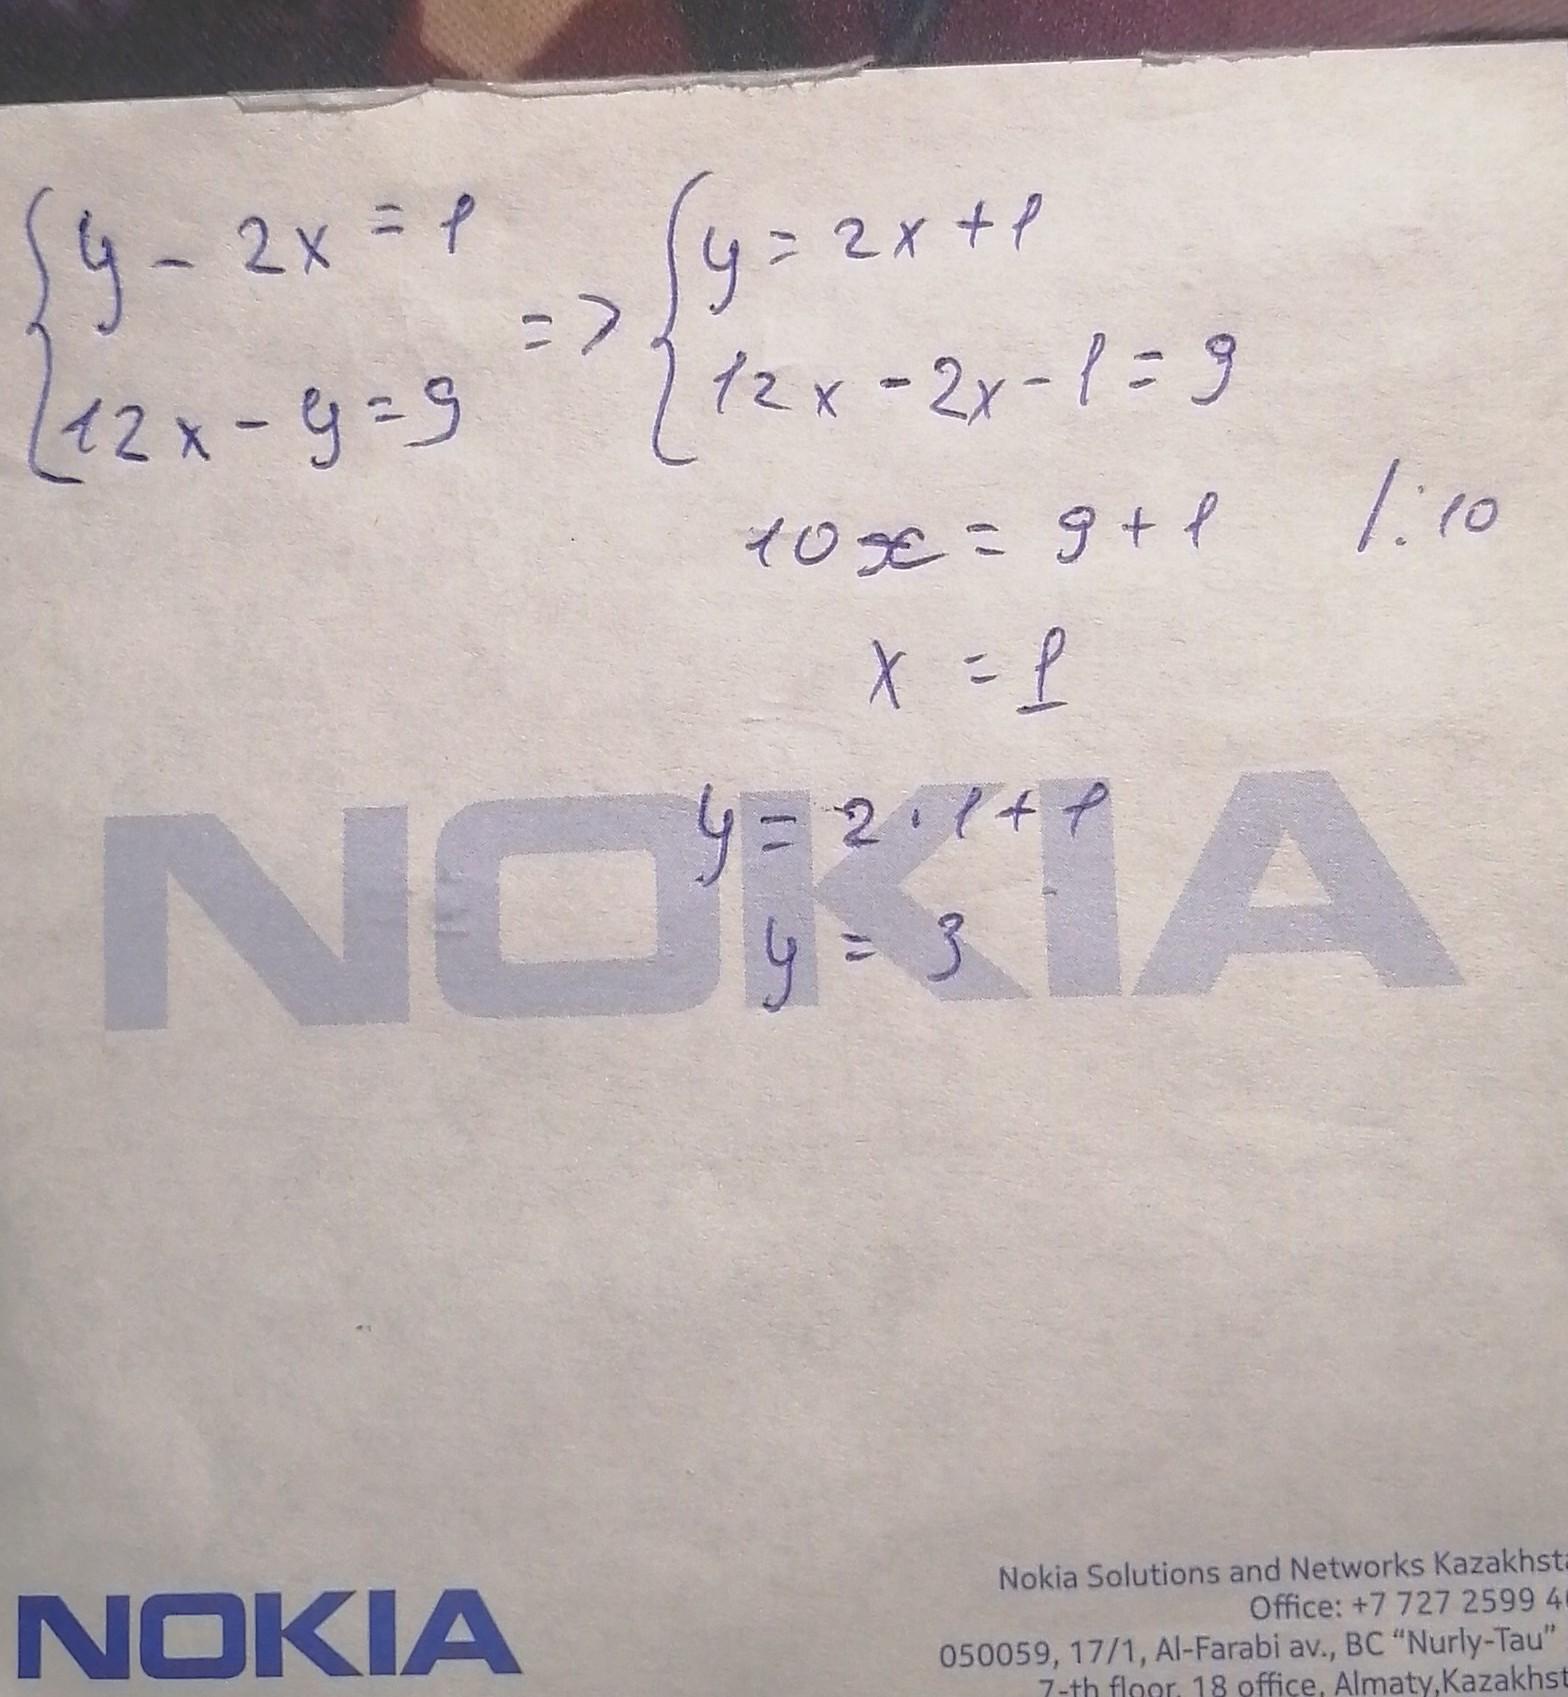 y - 2x = 1 => y = 2x + 1
12x - y = 9 12x - 2x - 1 = 9
10x = 9 + 1 /:10
x = 1
y = 2 · 1 + 1
y = 3
NOKIA
NOKIA
Nokia Solutions and Networks Kazakhsta
Office: +7 727 2599 4
050059, 17/1, Al-Farabi av., BC “Nurly-Tau”
7-th floor, 18 office, Almaty,Kazakhst